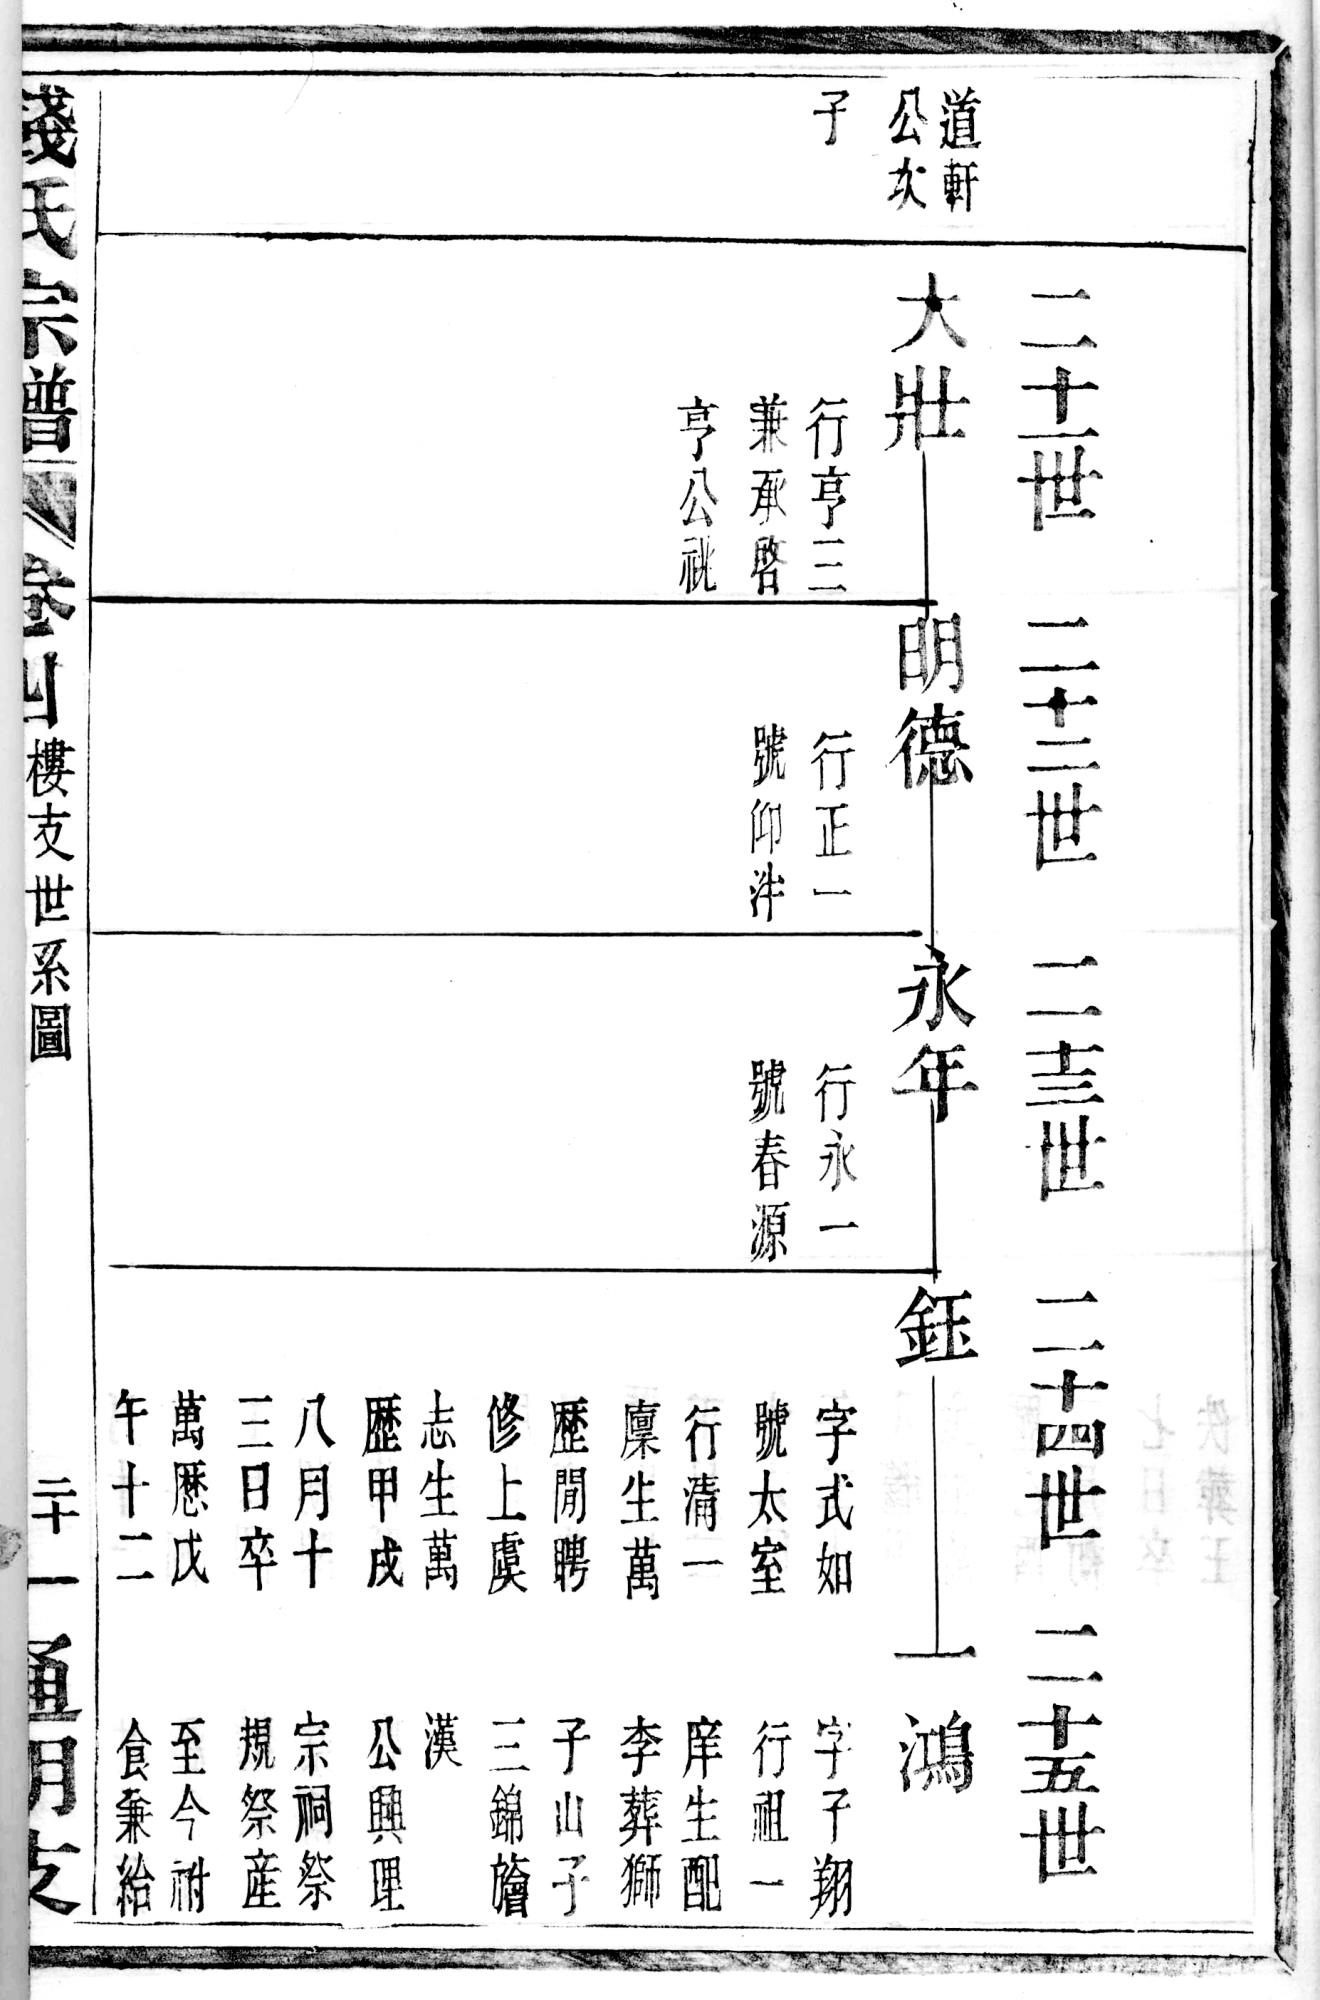 道軒
公次
子
二十一世
大壯
行亨三
兼承啓
亨公祧
二十二世
明德
行正一
號仰泮
二十三世
永年
行永一
號春源
二十四世
鈺
字式如
號太室
行清一
廩生萬
歷閒聘
修上虞
志生萬
歷甲戌
八月十
三日卒
萬歷戊
午十二
二十五世
一鴻
字子翔
行祖一
庠生配
李葬獅
子山子
三錦旝
漢
公興理
宗祠祭
規祭産
至今祔
食兼給
錢氏宗譜 卷四 樓支世系圖 二十一 通明支